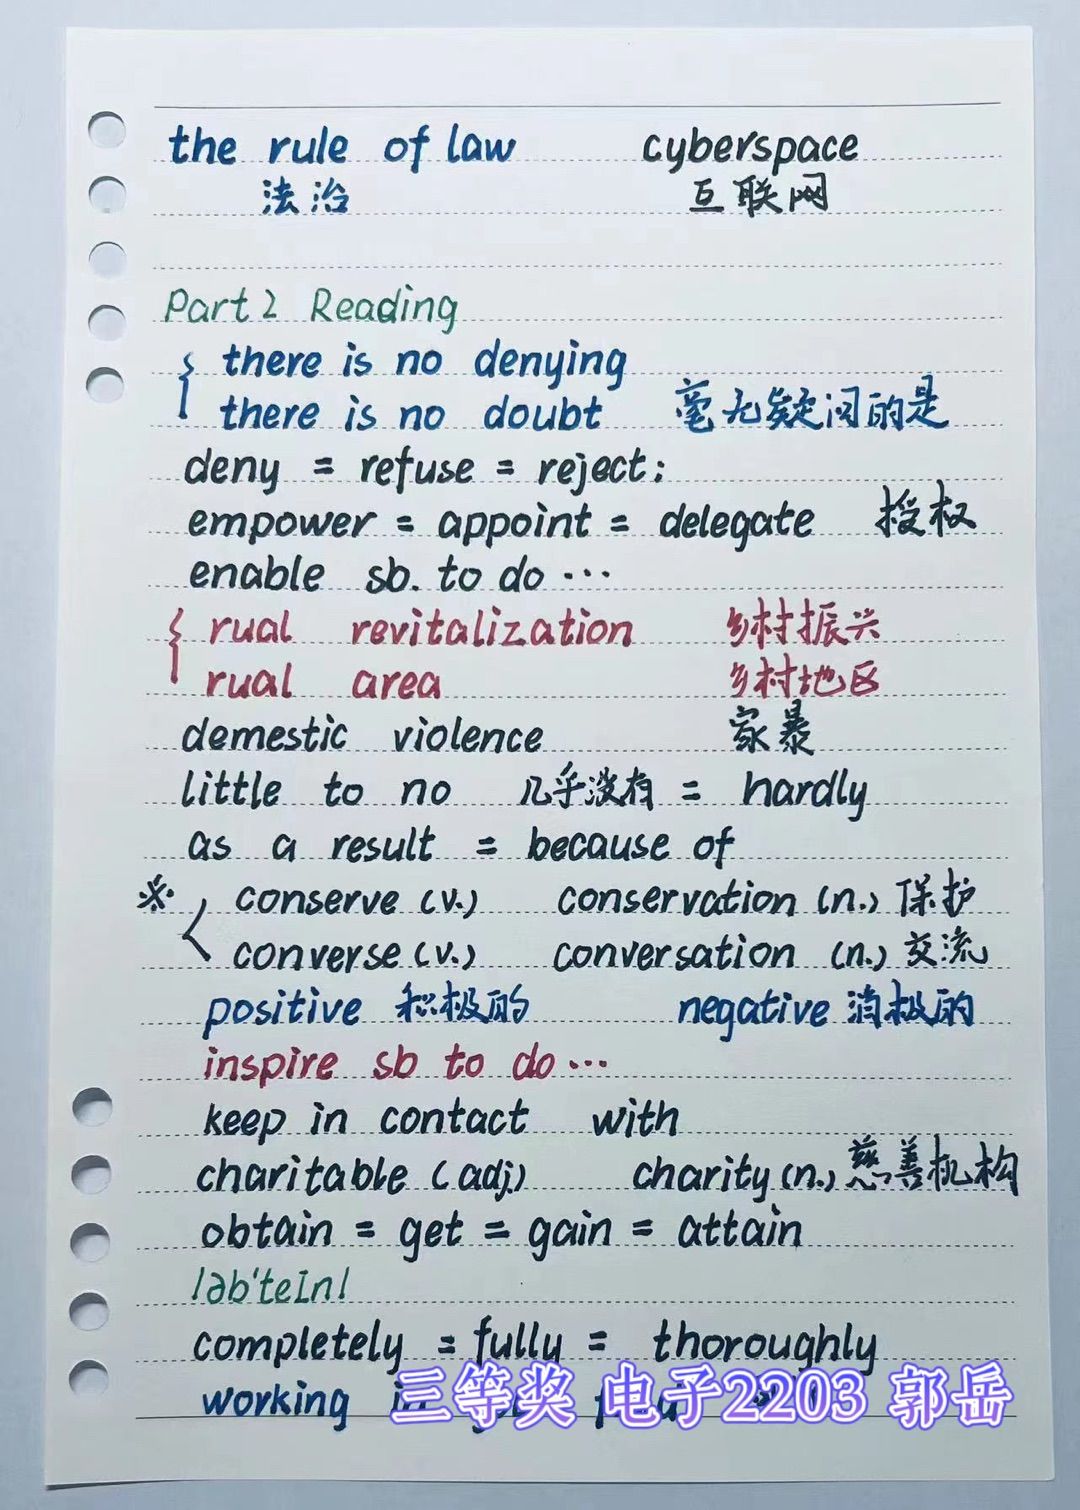 the rule of law cyberspace
法治 互联网
Part 2 Reading
there is no denying
there is no doubt 毫无疑问的是
deny = refuse = reject;
empower = appoint = delegate 授权
enable sb. to do ...
rual revitalization 乡村振兴
rual area 乡村地区
demestic violence 家暴
little to no 几乎没有 = hardly
as a result = because of
※ conserve (v.) conservation (n.) 保护
converse (v.) conversation (n.) 交流
positive 积极的 negative 消极的
inspire sb to do ...
keep in contact with
charitable (adj.) charity (n.) 慈善机构
obtain = get = gain = attain
/əb'teɪn/
completely = fully = thoroughly
working in
三等奖 电子2203 郭岳